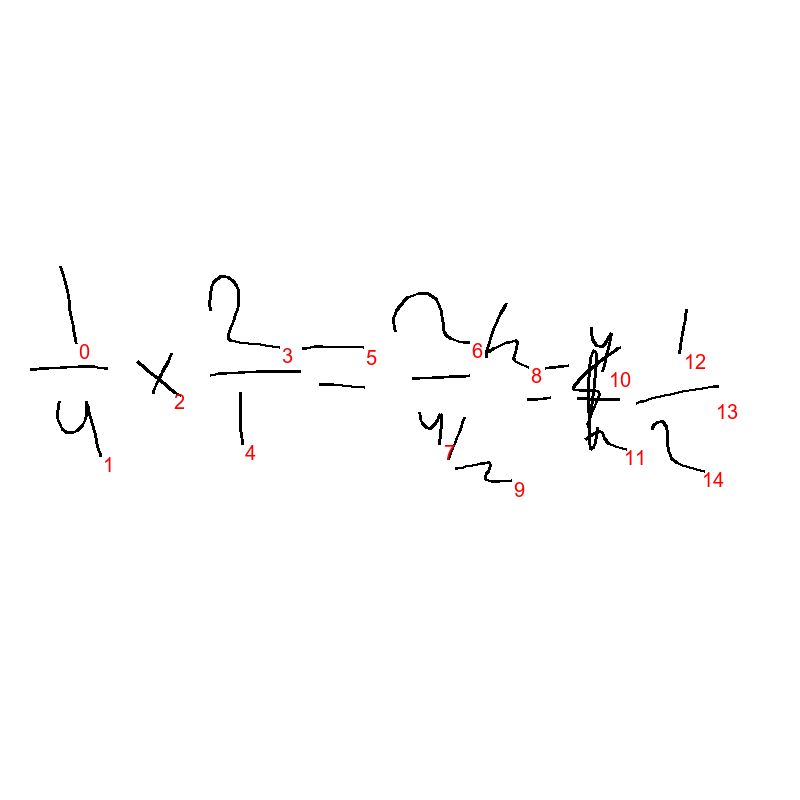 1/4 × 2/1 = 2/4 /2 /2 = 1/2
0 1 2 3 4 5 6 7 8 9 10 11 12 13 14